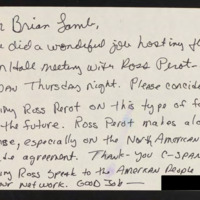 r Brian Lamb,
u did a wonderful job hosting th
n Hall meeting with Ross Perot-
pan Thursday night. Please conside
ing Ross Perot on this type of f
the future. Ross Perot makes a lo
nse, especially on the North American
de agreement. Thank-you C-Span
ing Ross Speak to the American People
our network. Good Job-